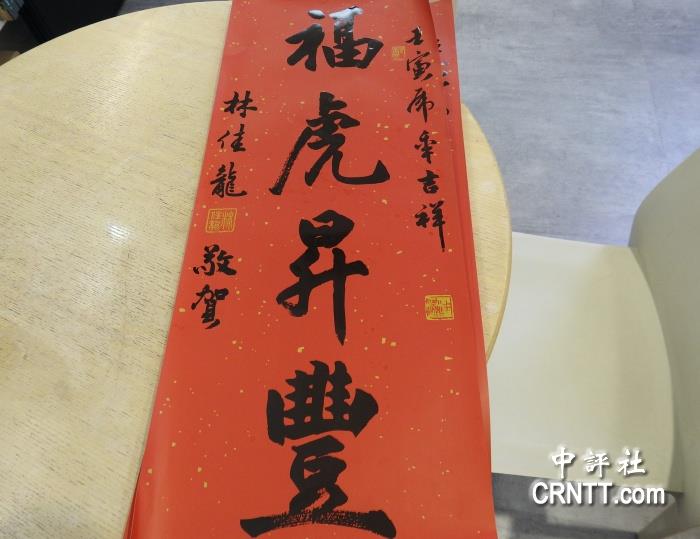 壬寅虎年吉祥
福虎昇豐
林佳龍
敬賀
中評社
CRNTT.com